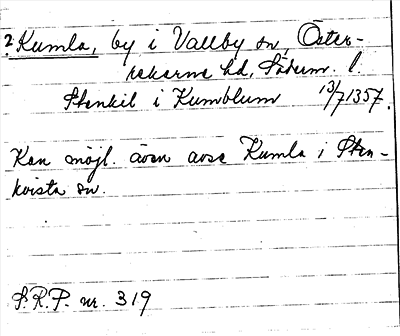 ? Kumla, by i Vallby sn, Öster-
rekarne hd, Söderm. l.
Stenkil i Kumblum 13/7 1357.
Kan möjl. även avse Kumla i Sten-
kvista sn.
S.R.P. nr. 319